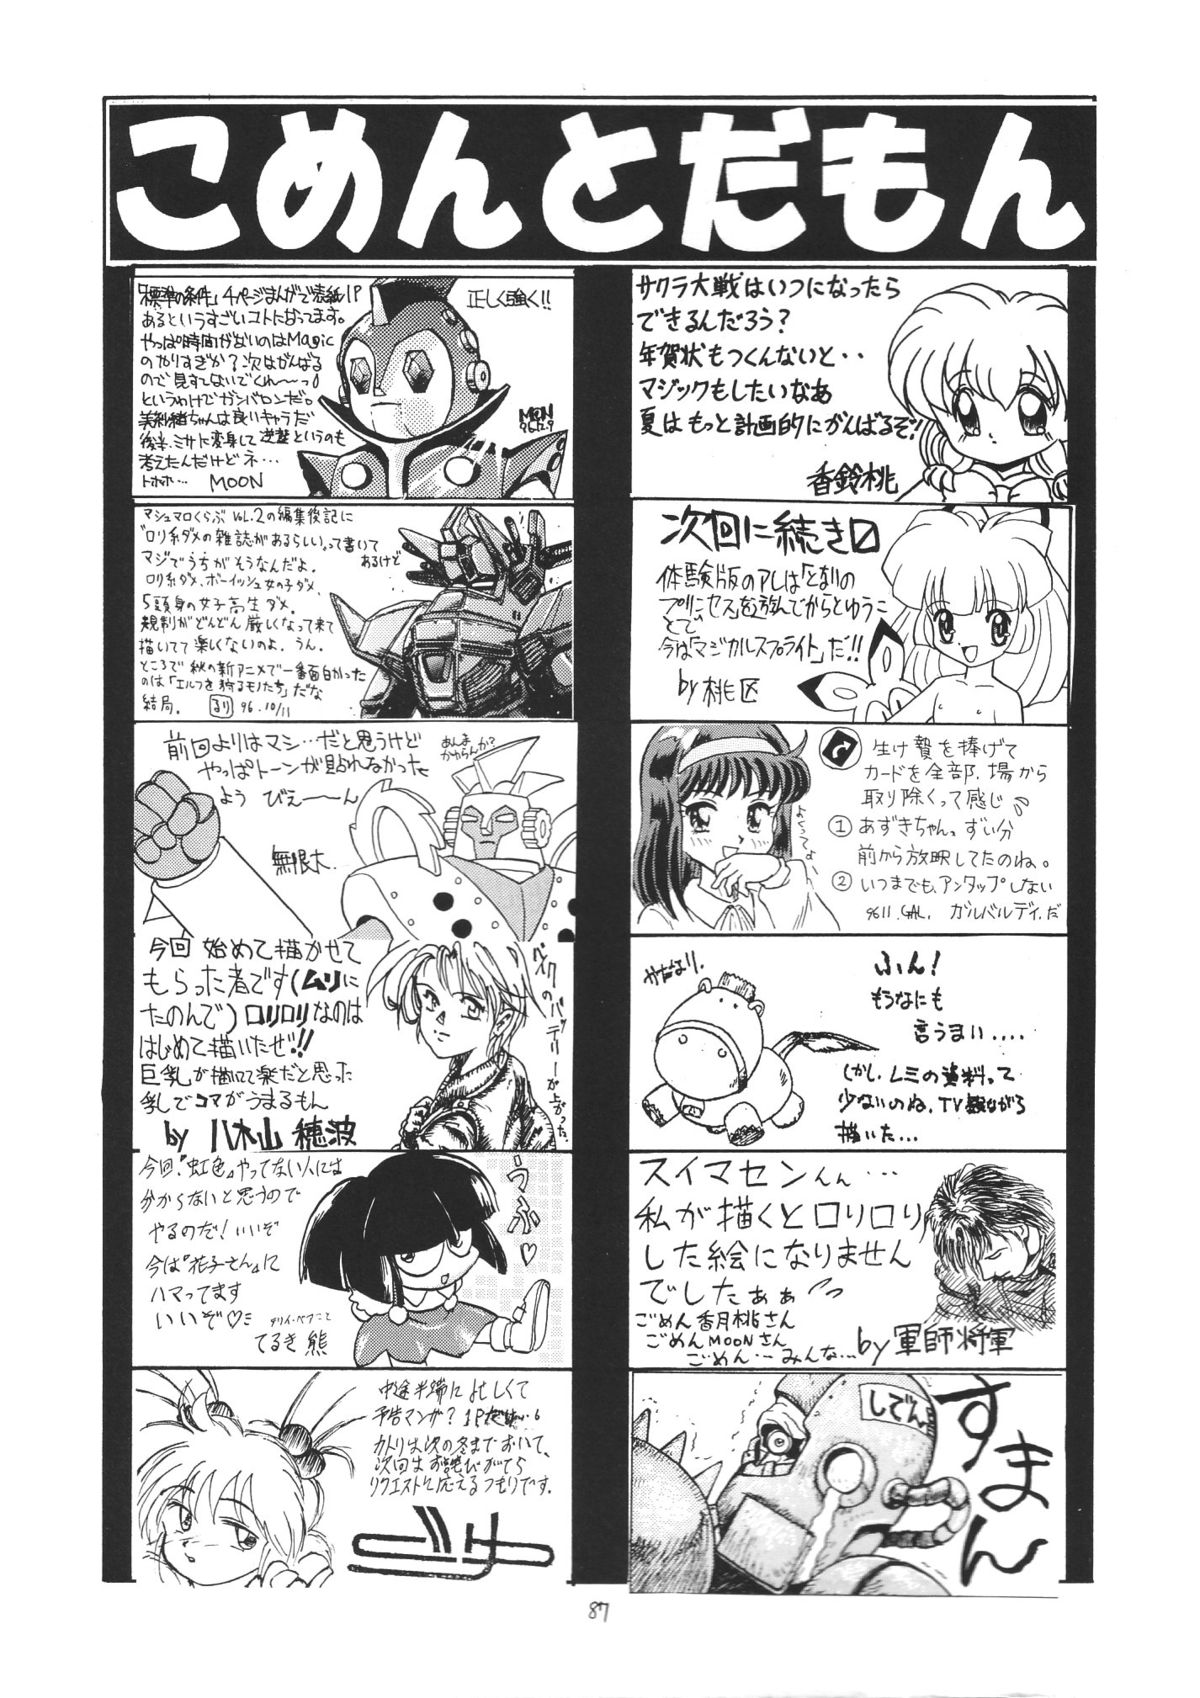 こめんとだもん
「標準の条件」4ページまんがで表紙1P
あるというすごいコトになってます。
やっぱ時間がないのはMagic
のやりすぎか?次はがんばる
ので見すてないでくれ〜〜っ
というわけでガンバロンだ。
美紗緒ちゃんは良いキャラだ
後半、ミサト変身して逆襲というのも
考えたんだけどネ…
トホホ… MOON
正しく強く!!
MOON
96.12.9
マシュマロくらぶ vol.2の編集後記に
「ロリ系ダメの雑誌があるらしい」って書いて
あるけど
マジでうちがそうなんだよ。
ロリ系ダメ、ボーイッシュ女の子ダメ、
5頭身の女子高生ダメ。
規制がどんどん厳しくなって来て
描いてて楽しくないのよ。うん。
ところで秋の新アニメで一番面白かった
のは「エルフを狩るモノたち」だな
結局。 るり 96.10/11
前回よりはマシ…だと思うけど
やっぱトーンが貼れなかった
よう びえーーん
あんま
かわらんか?
無限大
今回 始めて描かせて
もらった者です(ムリに
たのんで)ロリロリなのは
はじめて描いたぜ!!
巨乳が描けて楽だと思った
乳でコマがうまるもん
by 八木山 穂波
バイクのバッテリーが上がった。
今回『虹色』やってない人には
分からないと思うので
やるのだ!いいぞ
今は『花子さん』に
ハマってます
いいぞ♡
てるき熊
うふ♡
中途半端に忙しくて
予告マンガ?1Pだけ…。
カトリは次の冬までおいて、
次回はお詫びがてら
リクエストに応えるつもりです。
サクラ大戦はいつになったら
できるんだろう?
年賀状もつくんないと・・
マジックもしたいなあ
夏はもっと計画的にがんばるぞ!
香鈴桃
次回に続き
体験版のアレは「となりの
プリンセス」を遊んでからとゆうこ
とで
今は「マジカルスプライト」だ!!
by 桃区
生け贄を捧げて
カードを全部、場から
取り除くって感じ
① あずきちゃん。ずい分
前から放映してたのね。
② いつまでも、アンタップしない
9611.GAL. ガルバルディだ
よくってよ
ふん!
もうなにも
言うまい....
しかし、レミの資料って
少ないのね、TV観ながら
描いた…
スイマセンんん…
私が描くとロリロリ
した絵になりません
でしたぁぁ
ごめん香月桃さん
ごめんMOONさん
ごめん…みんな…
by 軍師将軍
しでん
すまん
87